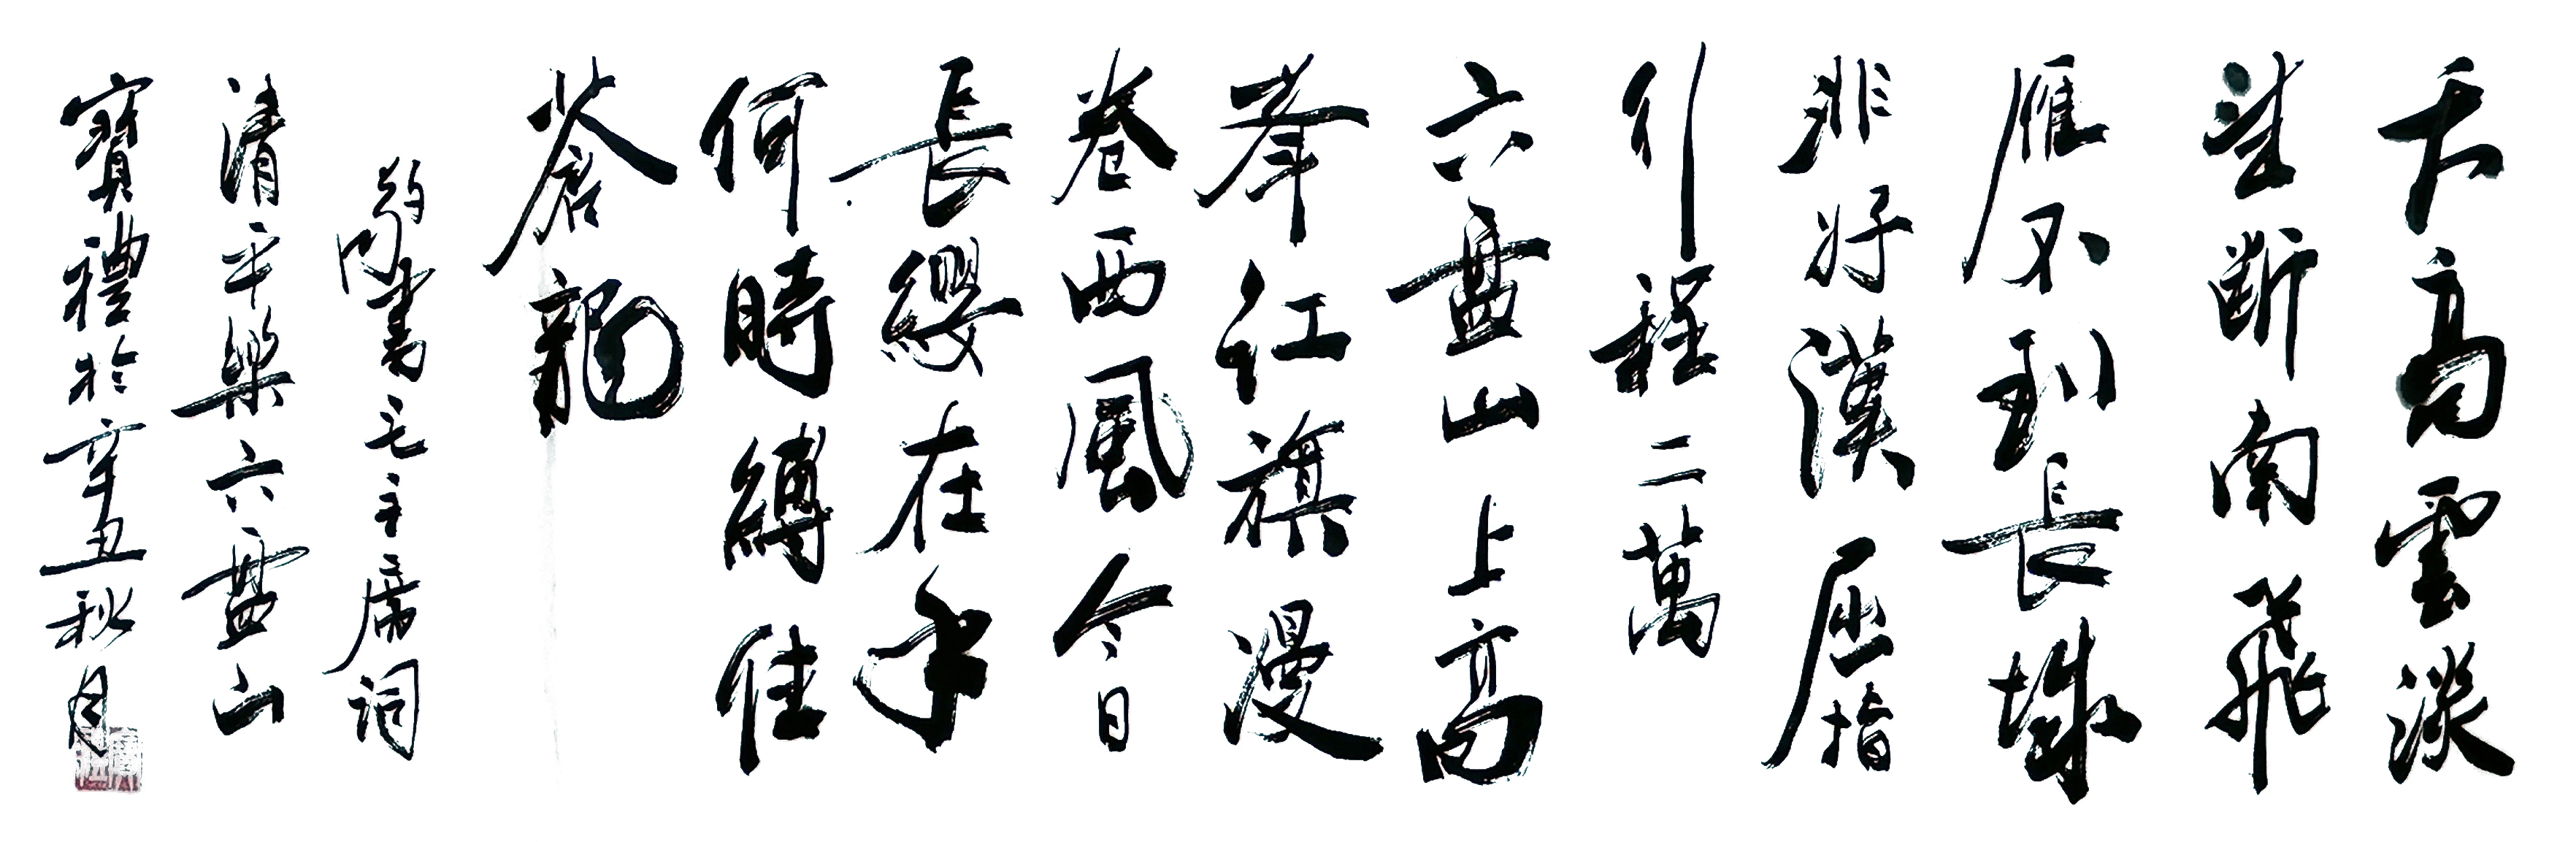 天高雲淡
望斷南飛
雁不到長城
非好漢屈指
行程二萬
六盘山上高
峯红旗漫
卷西風今日
長纓在手
何時縛住
蒼龍
敬書毛主席词
清平樂六盘山
寳禮於辛丑秋月